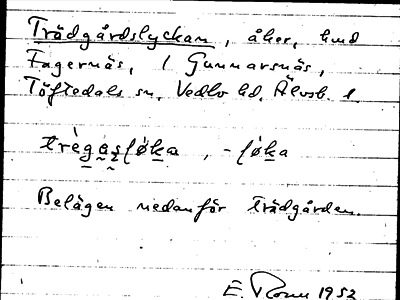 Trädgårdslyckan, åker, hmd
Fagernäs, 1 Gunnarsnäs,
Töftedals sn, Vedbo hd, Älvsb. l.
Belägen nedanför trädgården.
E. 1952